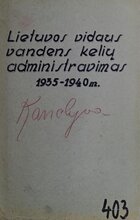 Lietuvos vidaus
vandens kelių
administravimas
1935-1940 m.
403